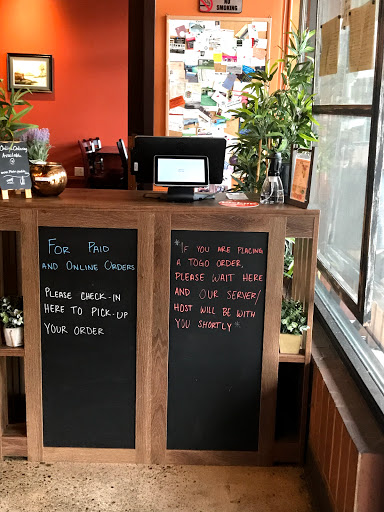 NO
SMOKING
Online Ordering
Available
FOR PAID
AND ONLINE ORDERS
PLEASE CHECK-IN
HERE TO PICK-UP
YOUR ORDER
*IF YOU ARE PLACING
A TOGO ORDER,
PLEASE WAIT HERE
AND OUR SERVER/
HOST WILL BE WITH
YOU SHORTLY*